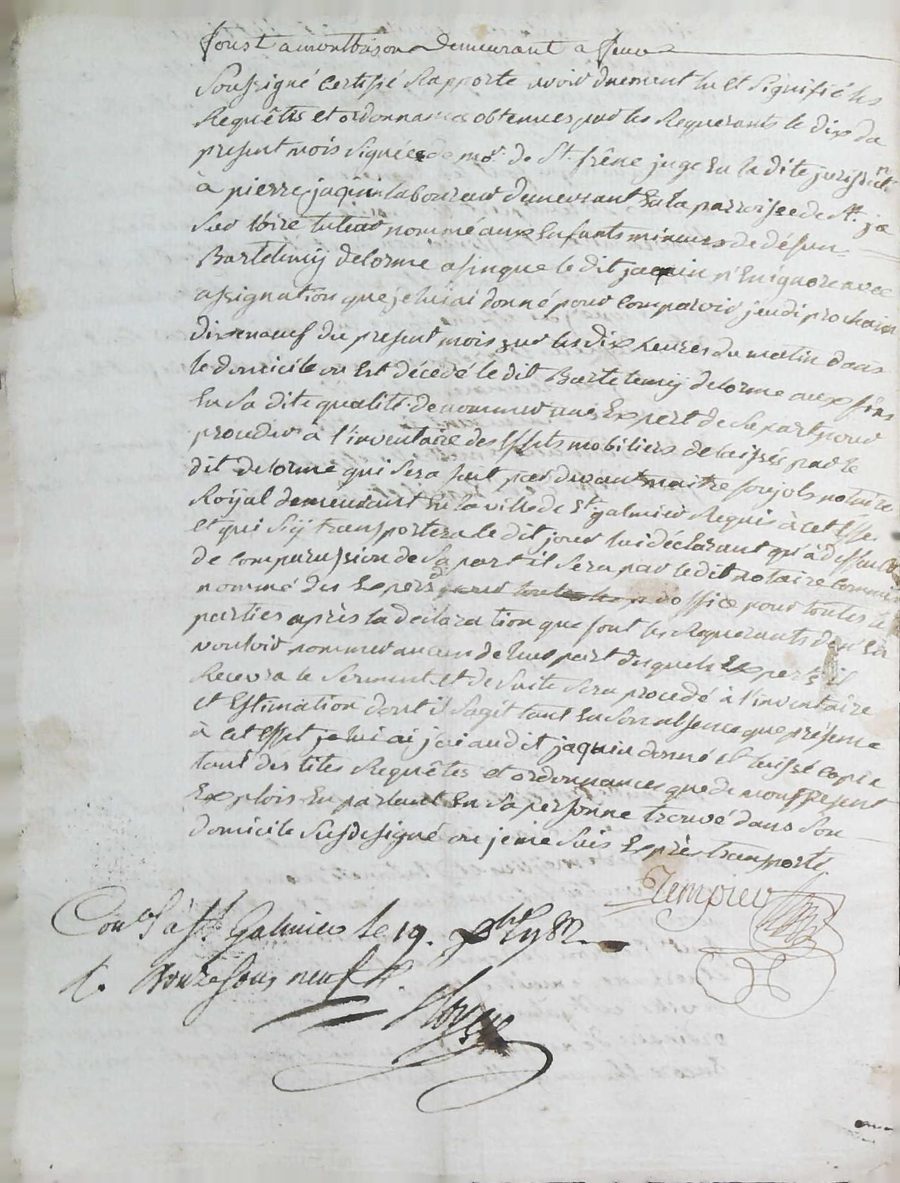 a montbison Demeurant a
Soussigné certifie Rapporte avoir duement lu et signifié les
Requêtes et ordonnance obtenues par les Requerants le dix du
present mois signée de mr. de St. frêne juge en la dite jurisdict
à pierre jaquin laboureur demeurant en la parroisse de St. ja
sur loire tuteur nommé aux Enfants mineurs de défun
Bartelemij delorme afinque le dit jaquin n'En ignore avec
assignation que je lui ai donné pour comparoir jeudi prochain
dixneuf du present mois sur les dix heures du matin dans
le domicile ou Est décédé le dit Bartelemij delorme aux fins
En sa dite qualité de nommer une Expert de sa part pour
proceder à l'inventaire des Effets mobiliers delaissés par le
dit delorme qui sera fait par devant maitre foujols notaire
Roijal demeurant En la ville de St. galmier Requis à cet Effe
et qui s'ij transportera le dit jour lui déclarant qu'à deffaut
de comparussion de sa part il sera par le dit notaire commis
nommé des Expers d'office pour toutes le
parties après la déclaration que font les Requerants d'en
vouloir nommer aucun de leur part desquels Experts il
Recevra le serment et de suite sera procedé à l'inventaire
et Estimation dont il s'agit tant En son absence que présence
à cet Effet je lui ai j'ai audit jaquin donné et laissé copie
tant des dites Requêtes et ordonnances que du present
Exploit En parlant En sa personne trouvé dans son
domicile susdesigné ou je me suis Exprès transporté
Tempier
Con. à St. Galmier le 19. 9bre 1782
sous neuf d.